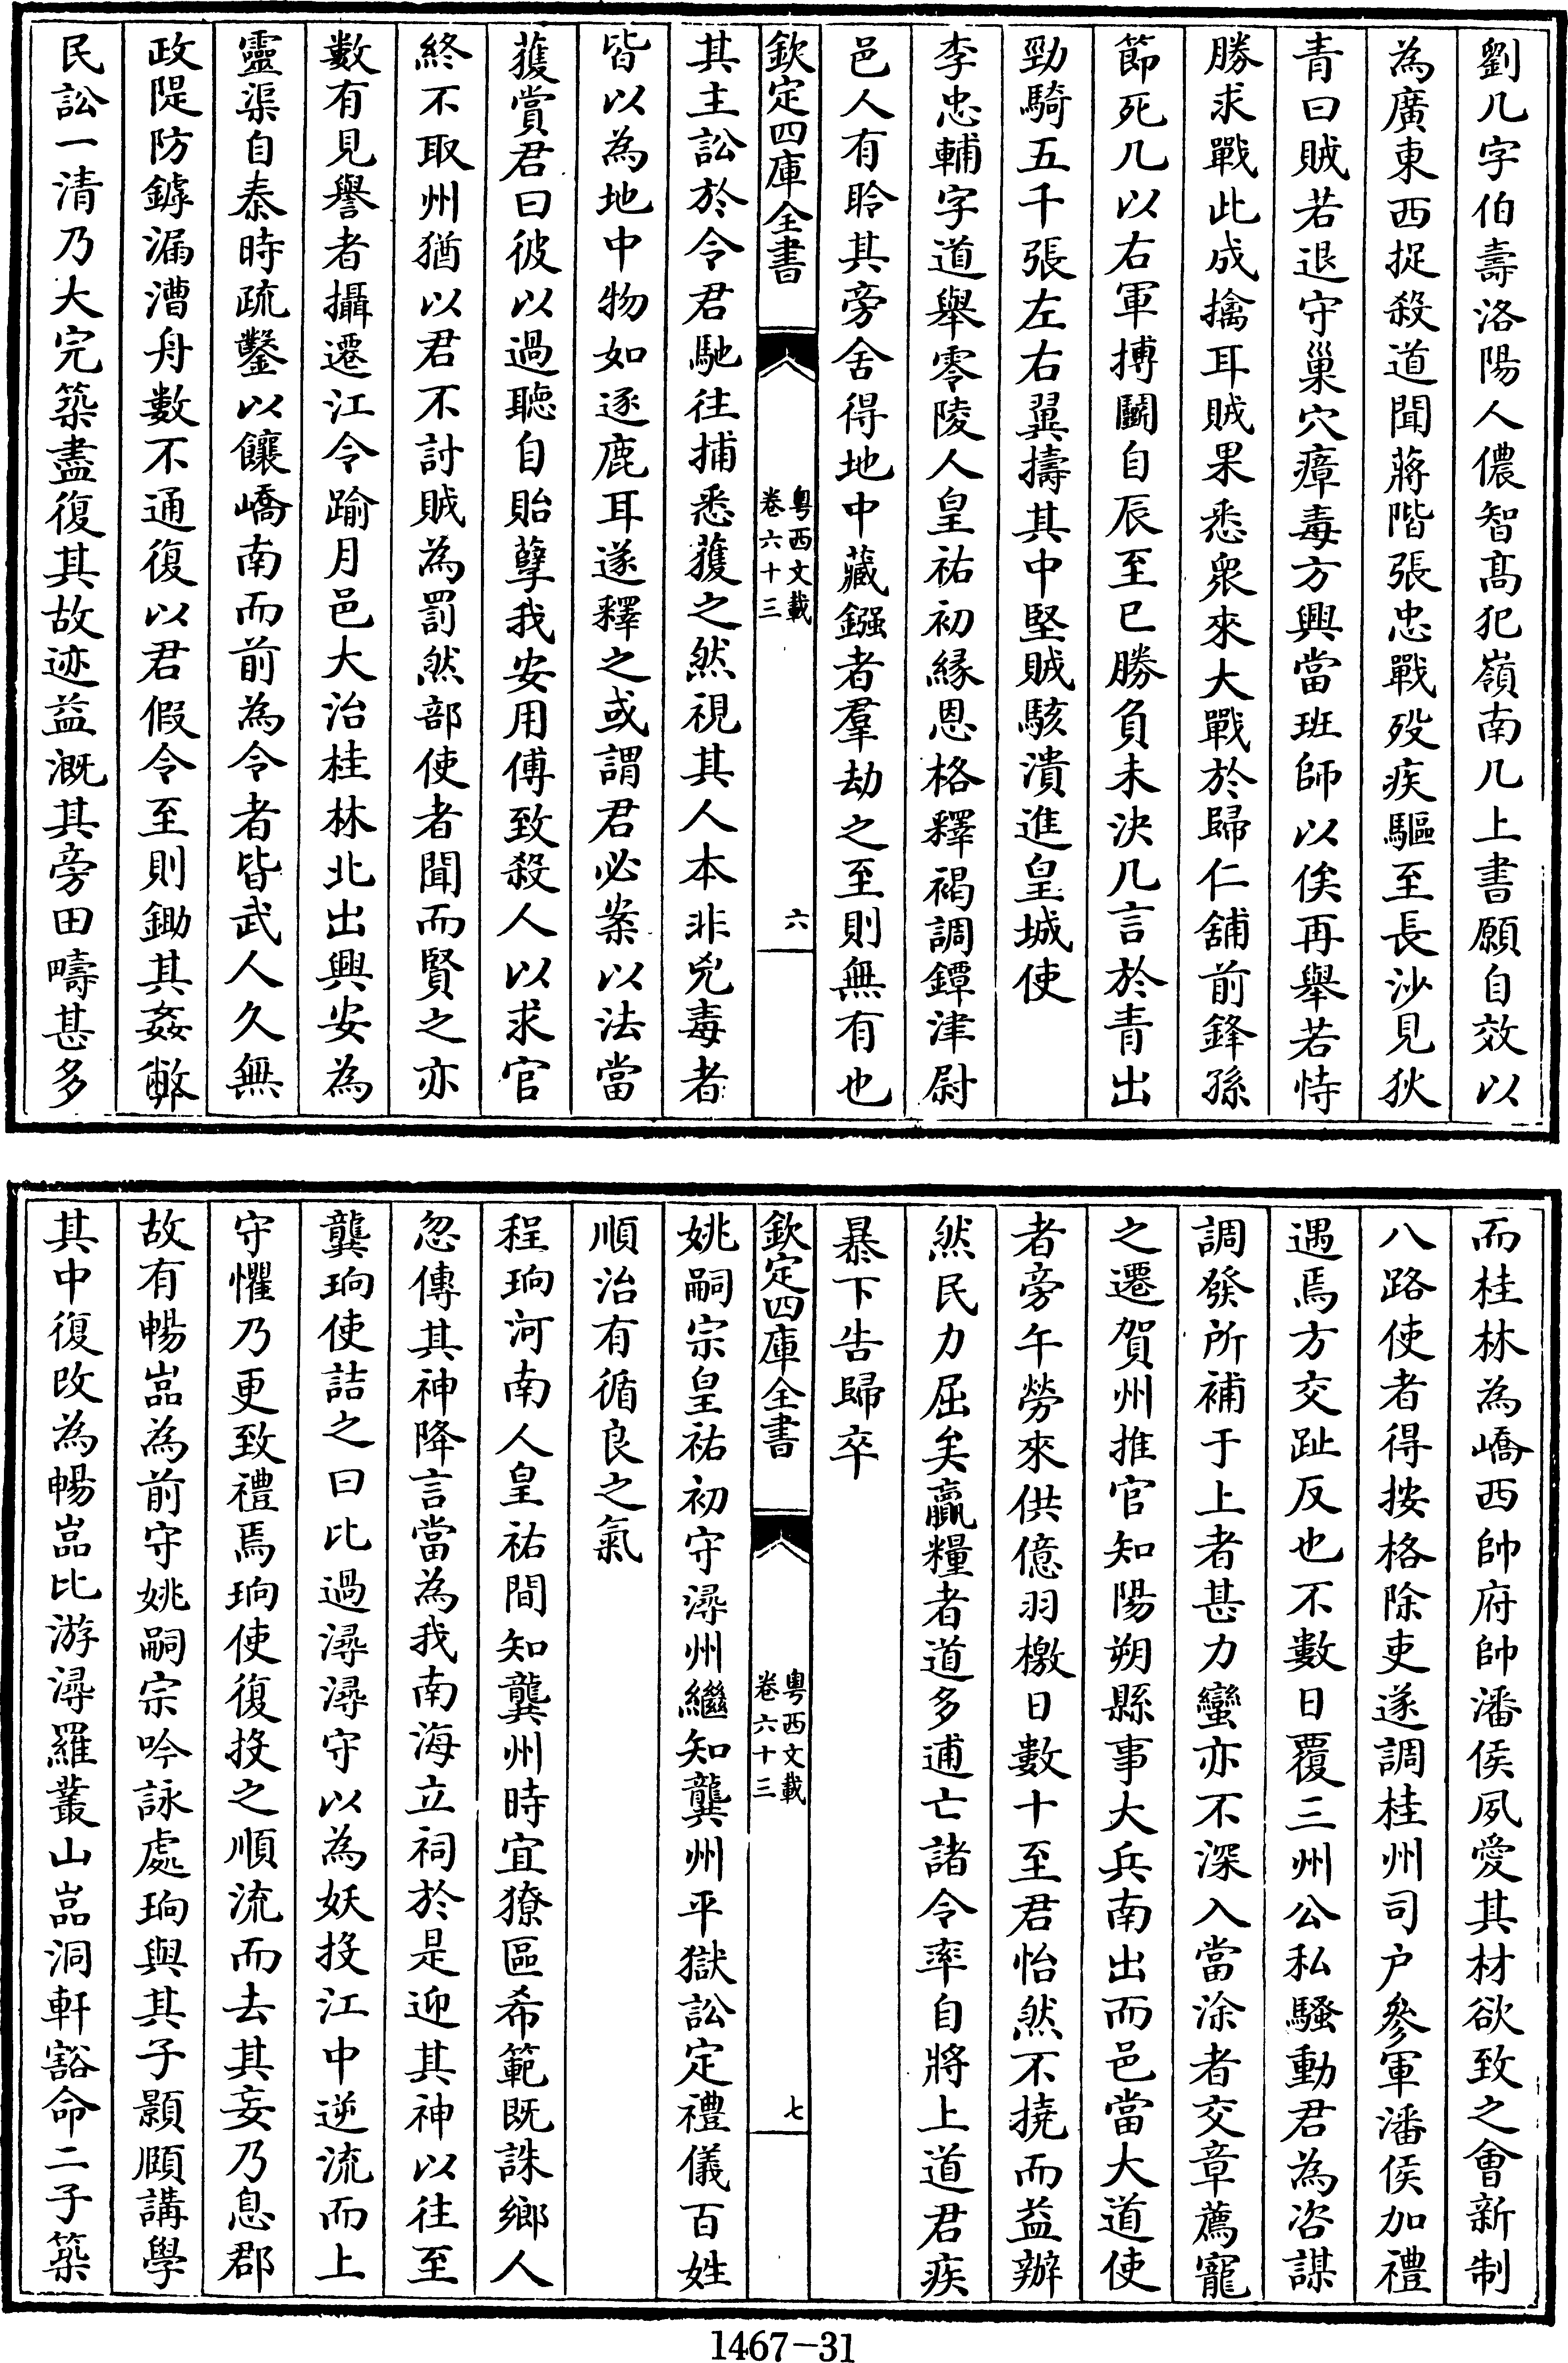 劉几字伯壽洛陽人儂智髙犯嶺南几上書願自效以
為廣東西捉殺道聞蔣階張忠戰殁疾驅至長沙見狄
青曰賊若退守巢穴瘴毒方興當班師以俟再舉若恃
勝求戰此成擒耳賊果悉衆來大戰於歸仁舖前鋒孫
節死几以右軍搏鬭自辰至巳勝負未決几言於青出
勁騎五千張左右翼擣其中堅賊駭潰進皇城使
李忠輔字道舉零陵人皇祐初緣恩格釋褐調鐔津尉
邑人有聆其旁舍得地中藏鏹者羣劫之至則無有也
欽定四庫全書
粤西文載
卷六十三
六
其主訟於令君馳往捕悉獲之然視其人本非兇毒者
皆以為地中物如逐鹿耳遂釋之或謂君必案以法當
獲賞君曰彼以過聽自貽孽我安用傅致殺人以求官
終不取州猶以君不討賊為罰然部使者聞而賢之亦
數有見譽者攝遷江令踰月邑大治桂林北出興安為
靈渠自秦時疏鑿以饟嶠南而前為令者皆武人久無
政隄防鏬漏漕舟數不通復以君假令至則鋤其姦弊
民訟一清乃大完築盡復其故迹益溉其旁田疇甚多
而桂林為嶠西帥府帥潘侯夙愛其材欲致之會新制
八路使者得按格除吏遂調桂州司户參軍潘侯加禮
遇焉方交趾反也不數日覆三州公私騷動君為咨謀
調發所補于上者甚力蠻亦不深入當涂者交章薦寵
之遷賀州推官知陽朔縣事大兵南出而邑當大道使
者旁午勞來供億羽檄日數十至君怡然不撓而益辦
然民力屈矣贏糧者道多逋亡諸令率自將上道君疾
暴下告歸卒
欽定四庫全書
粤西文載
卷六十三
七
姚嗣宗皇祐初守潯州繼知龔州平獄訟定禮儀百姓
順治有循良之氣
程珦河南人皇祐間知龔州時宜獠區希範既誅鄉人
忽傳其神降言當為我南海立祠於是迎其神以往至
龔珦使詰之曰比過潯潯守以為妖投江中逆流而上
守懼乃更致禮焉珦使復投之順流而去其妄乃息郡
故有暢嵓為前守姚嗣宗吟詠處珦與其子顥頤講學
其中復改為暢嵓比游潯羅叢山嵓洞軒豁命二子築
1467-31